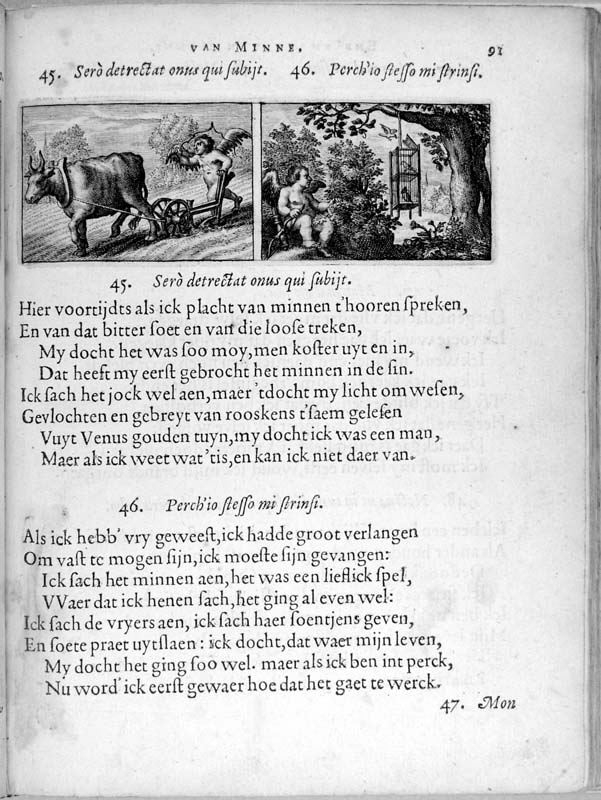 VAN MINNE. 91
45. Serò detrectat onus qui subijt. 46. Perch'io stesso mi strinsi.
45. Serò detrectat onus qui subijt.
Hier voortijdts als ick placht van minnen t'hooren spreken,
En van dat bitter soet en van die loose treken,
My docht het was soo moy, men koster uyt en in,
Dat heeft my eerst gebrocht het minnen in de sin.
Ick sach het jock wel aen, maer 'tdocht my licht om wesen,
Gevlochten en gebreyt van rooskens t'saem gelesen
Vuyt Venus gouden tuyn, my docht ick was een man,
Maer als ick weet wat 'tis, en kan ick niet daer van.
46. Perch'io stesso mi strinsi.
Als ick hebb' vry geweest, ick hadde groot verlangen
Om vast te mogen sijn, ick moeste sijn gevangen:
Ick sach het minnen aen, het was een lieflick spel,
VVaer dat ick henen sach, het ging al even wel:
Ick sach de vryers aen, ick sach haer soentjens geven,
En soete praet uytslaen: ick docht, dat waer mijn leven,
My docht het ging soo wel. maer als ick ben int perck,
Nu word' ick eerst gewaer hoe dat het gaet te werck.
47. Mon